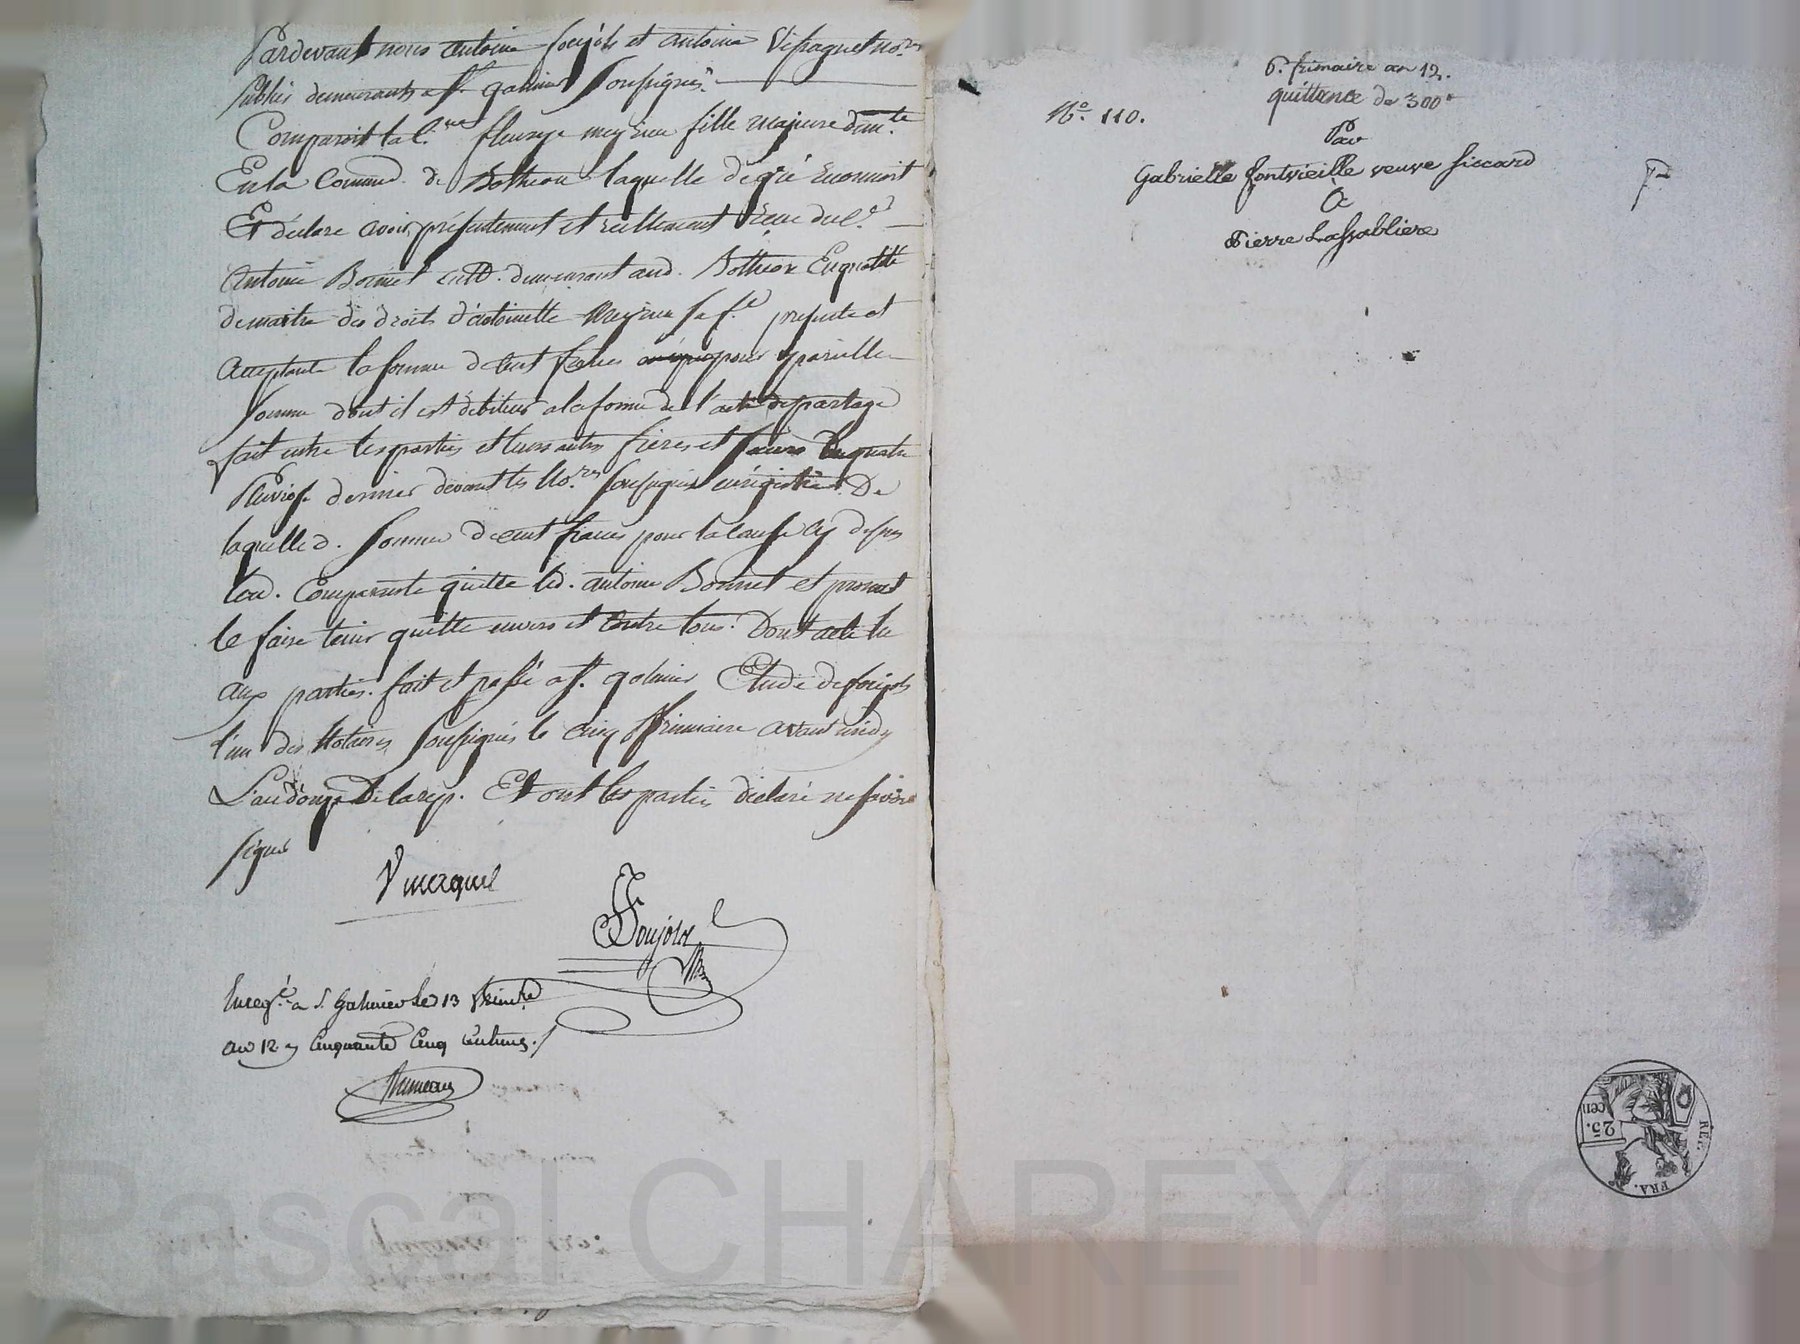 Pardevant nous antoine soujols et antoine no.res
publics demeurants a st. galmier soussignés
Comparoit la C.nne fleurye meyrieu fille majeure dem.te
En la Commune de Bothéon laquelle de gré reconnoit
Et déclare avoir présentement et réellement Recu du C.n
Antoine Bonnet cult. demeurant aud. Bothéon En qualité
de maitre des droits d'antoinette Meyrieu sa f.e présente et
acceptante la somme de cent francs pour pareille
somme dont il est débiteur a la forme de l'acte de partage
fait entre les parties et leurs autres frères et soeurs le quatre
Pluviose dernier devant les No.res soussignés enrégistré. De
laquelle d. somme de cent francs pour la cause cy dessus
lad. Comparante quitte led. antoine Bonnet et promet
le faire tenir quitte envers et contre tous. Dont acte lu
aux parties. fait et passé a st. galmier Etude de soujols
l'un des Notaires soussignés le cinq frimaire avant midy
L'an douze De la rep. Et ont les parties déclaré ne savoir
signer
Soujols
Enreg.é a S. Galmier le 13 frimaire
an 12 cinquante cinq centimes.
6. frimaire an 12.
quittance de 300
N.o 110.
Par
Gabrielle fontvieille veuve siccard
A
Pierre Lassabliere
RÉP.
FRA.
25.
cen
Pascal CHAREYRON